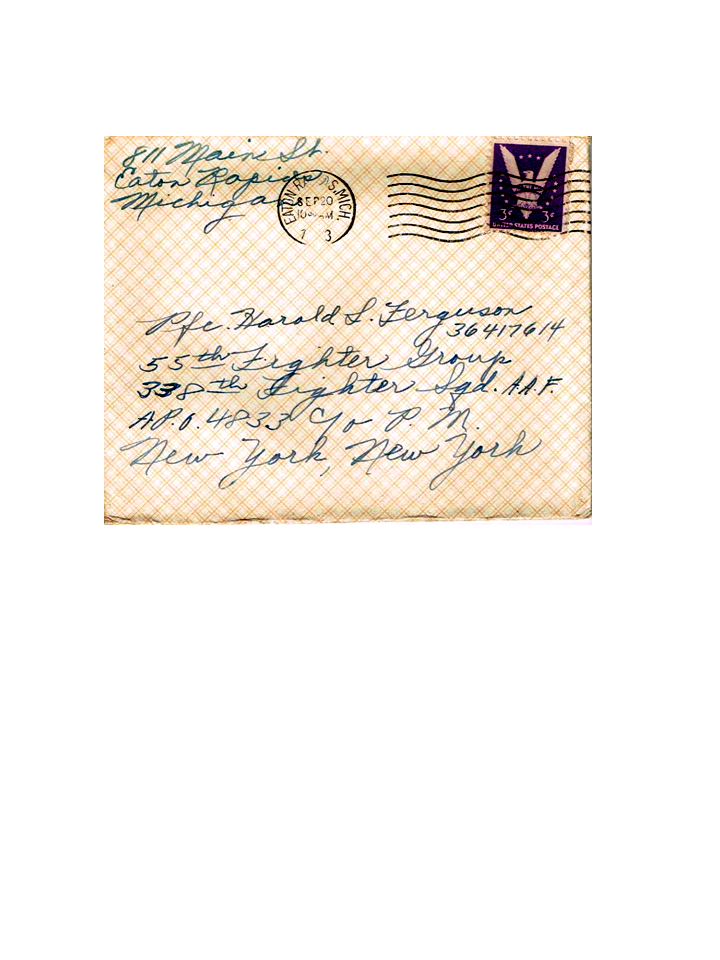 811 Main St.
Eaton Rapids
Michigan
EATON RAPIDS, MICH.
SEP 20
10 AM
1 3
3¢ 3¢
UNITED STATES POSTAGE
Pfc. Harold L. Ferguson
36417614
55th Fighter Group
338th Fighter Sqd. A.A.F.
A.P.O. 4833 c/o P. M.
New York, New York